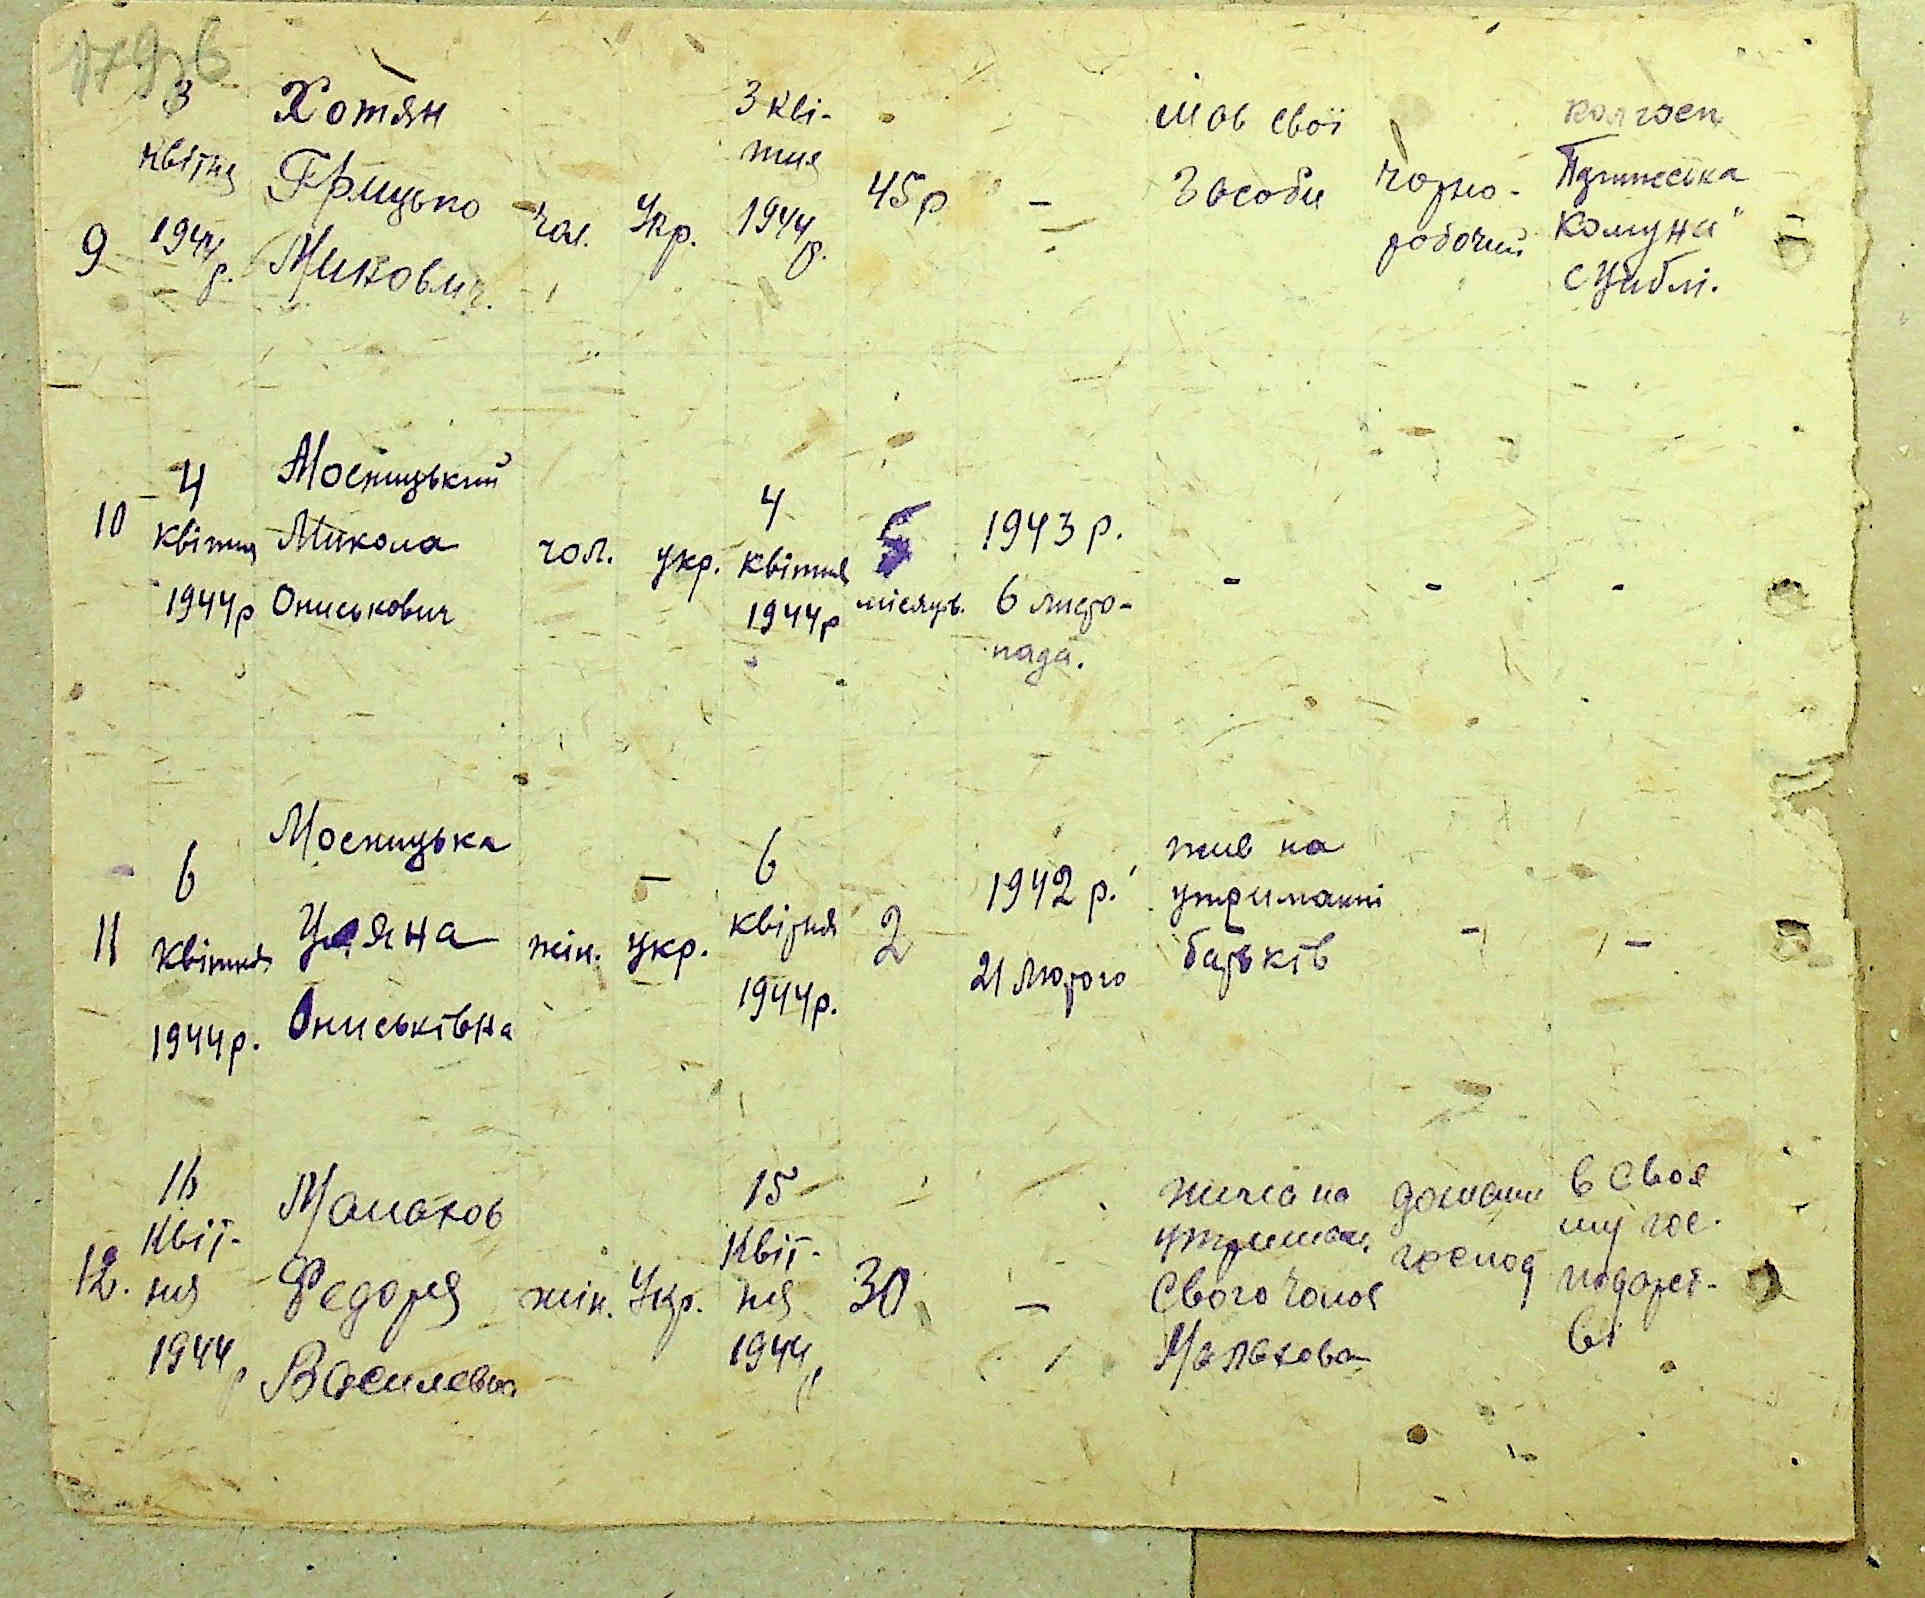 179зв
3
квітня
1944
р.
9
Хотян
Грицько
Микович.
чол.
Укр.
3 кві-
тня
1944
р.
45 р
-
мав свої
Засоби
чорно-
робочий
колгосп
Паризська
комуна"
с Циблі.
10
4
квітня
1944р
Мосницький
Микола
Ониськович
чол.
укр.
4
квітня
1944р
5
місяців.
1943 р.
6 листо-
пада.
-
-
-
11
6
квітня
1944р.
Мосницька
Уляна
Ониськівна
жін.
укр.
6
квітня
1944р.
2
1942 р.
21 лютого
жив на
утриманні
батьків
-
-
12.
16
Квіт-
ня
1944
р
Малахов
Федоря
Василевна
жін.
Укр.
15
Квіт-
ня
1944
р
30
-
жила на
утриман,
Свого Чолов
Малахова
домашн
господ
в своя
му гос-
подарст-
ві